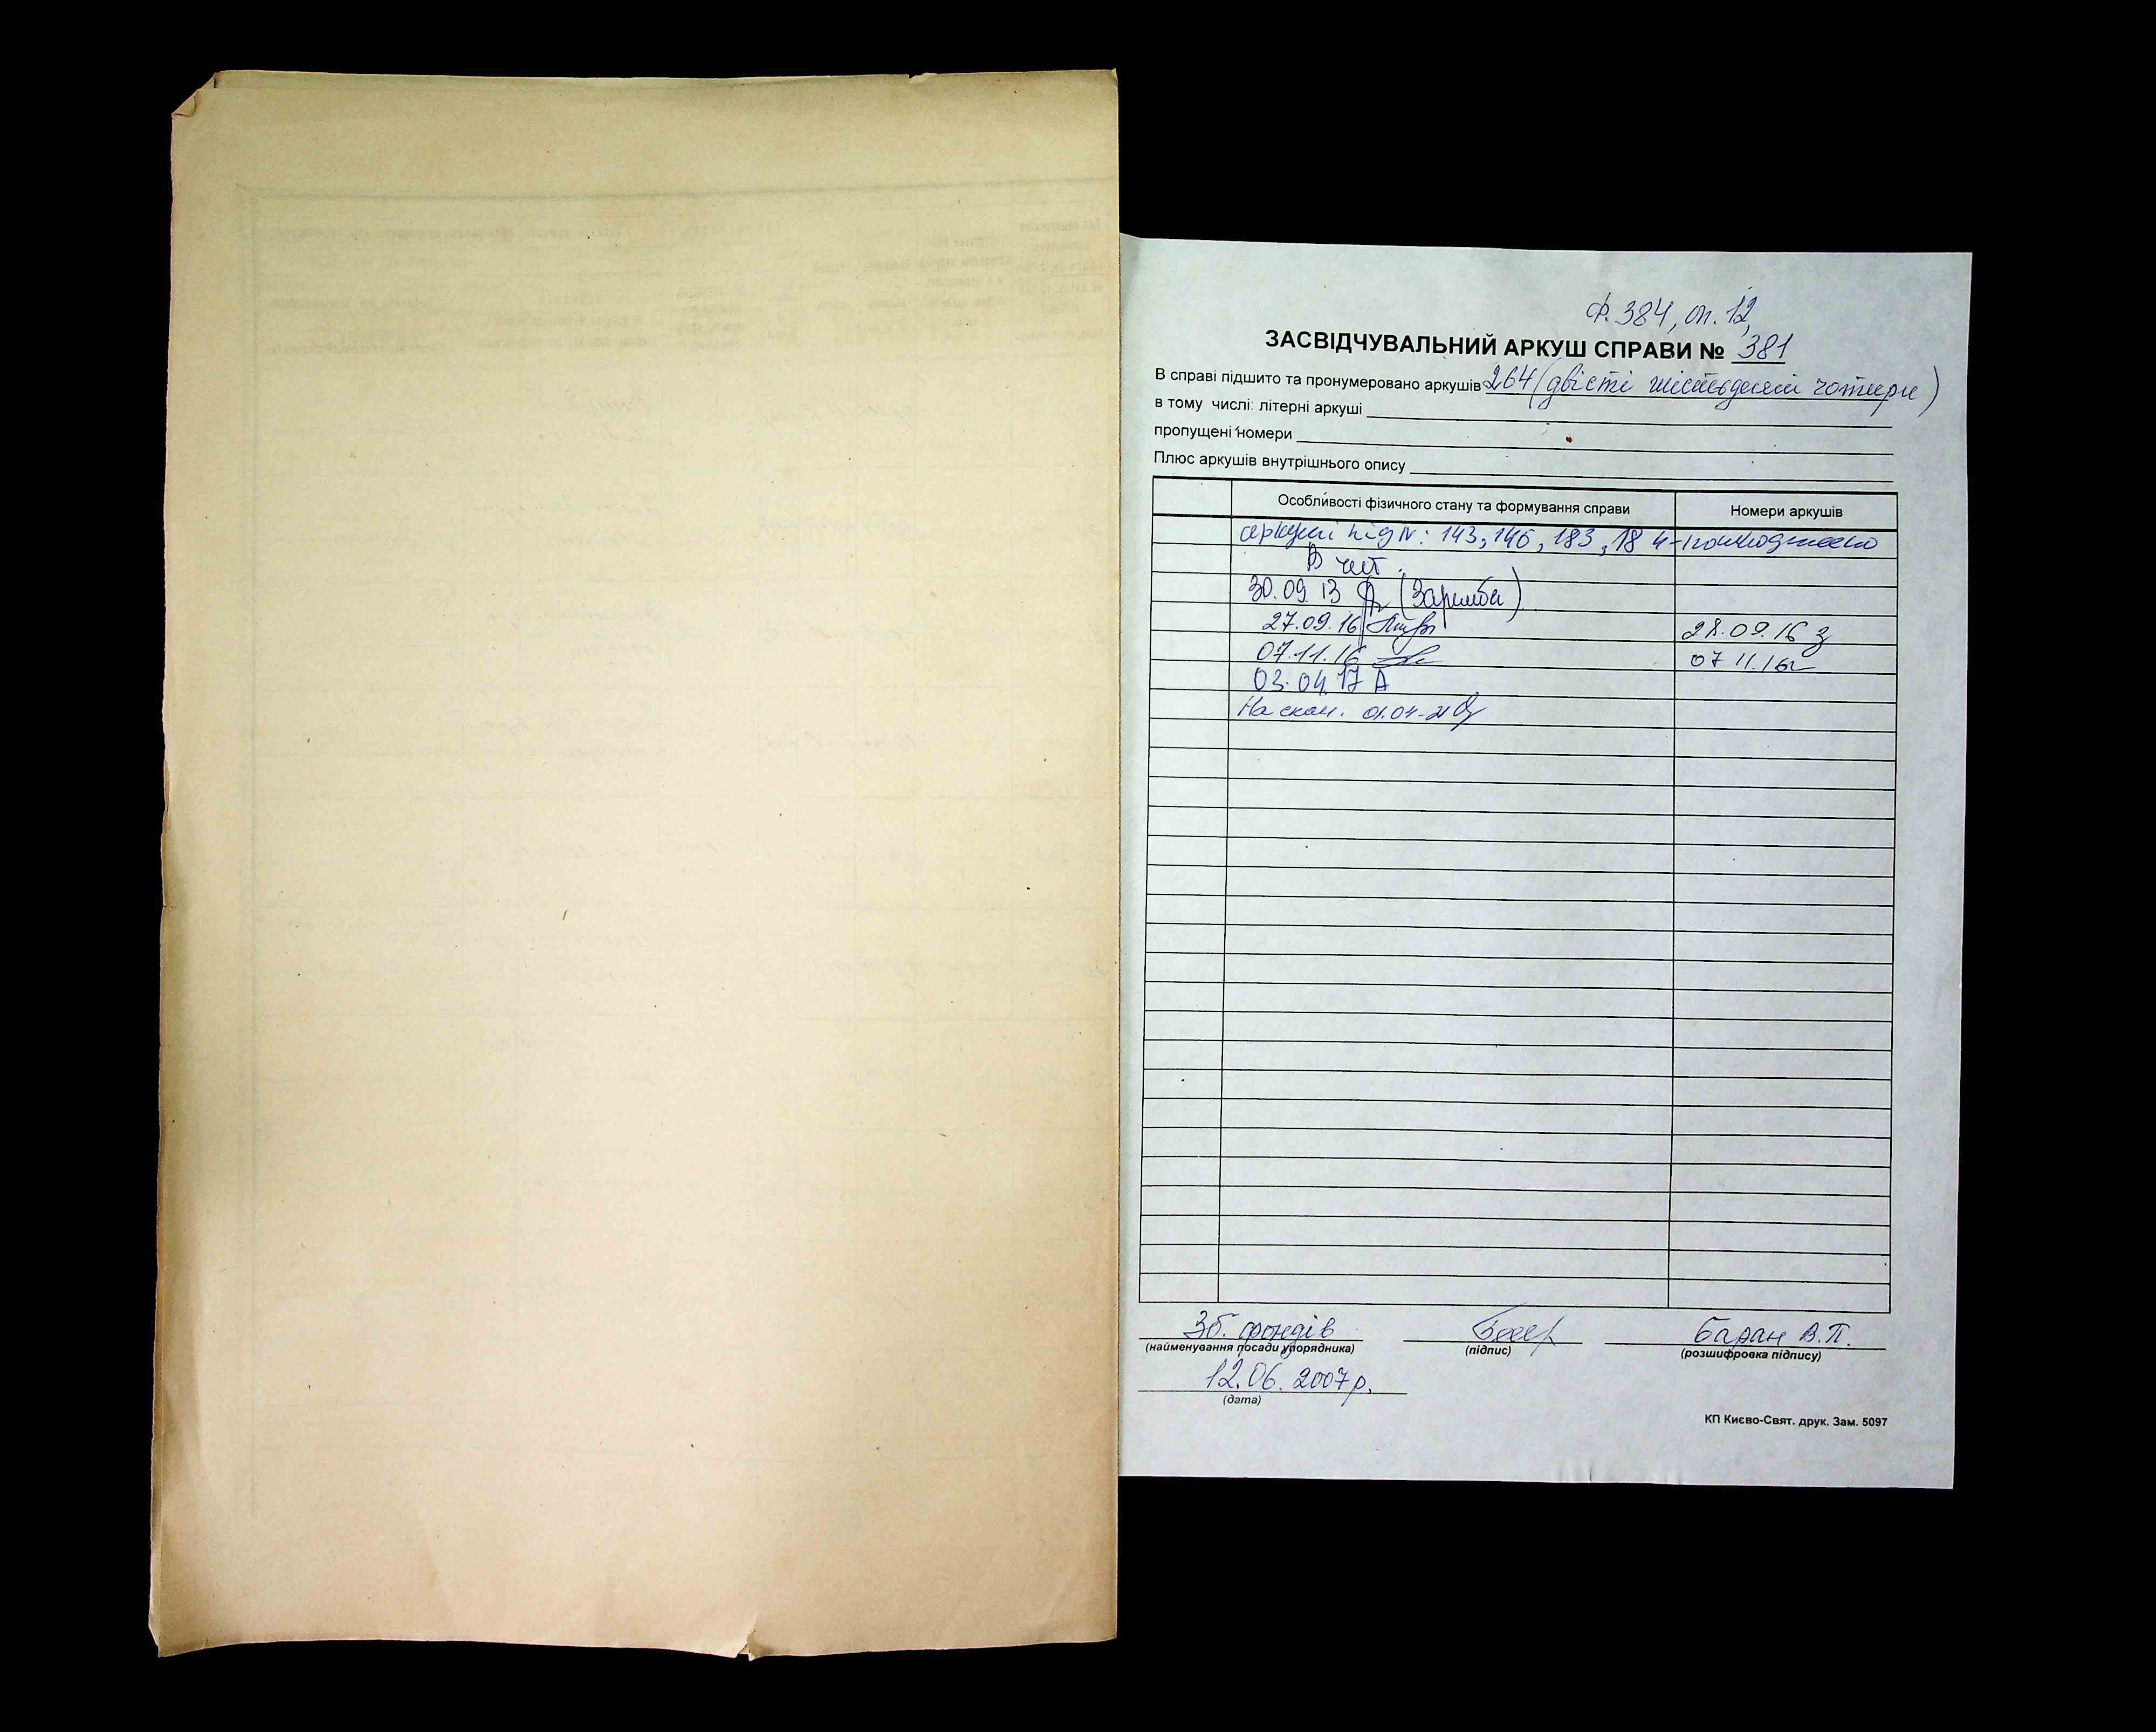 ф. 384, оп. 12,
ЗАСВІДЧУВАЛЬНИЙ АРКУШ СПРАВИ № 381
В справі підшито та пронумеровано аркушів 264 (двісті шістьдесят чотири)
в тому числі: літерні аркуші
пропущені номери
Плюс аркушів внутрішнього опису
Особливості фізичного стану та формування справи Номери аркушів
аркуші під №: 143, 146, 183, 184 - пошкоджено
В чит.
30.09.13 (Заремба)
27.09.16 28.09.16
07.11.16 07 11.16
03.04.17
На скан. 01.04.21
Зб. фондів Баран В.П.
(найменування посади упорядника) (підпис) (розшифровка підпису)
12.06.2007р.
(дата)
КП Києво-Свят. друк. Зам. 5097